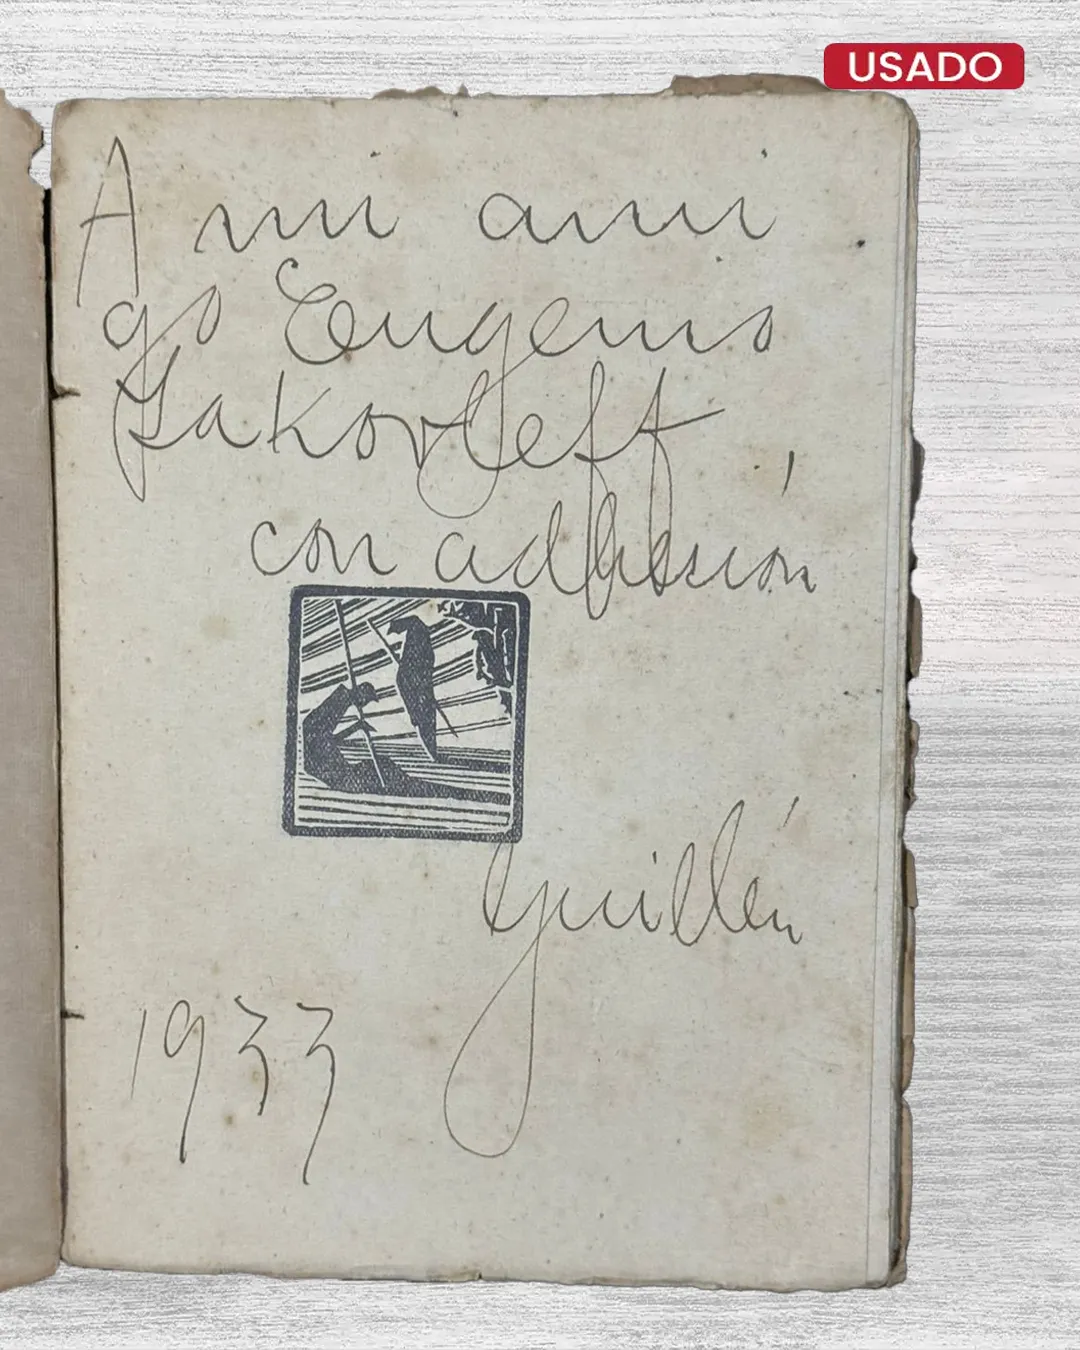 USADO
A mi ami
go Eugenio
Yakovleff,
con adhesión
Guillén
1933